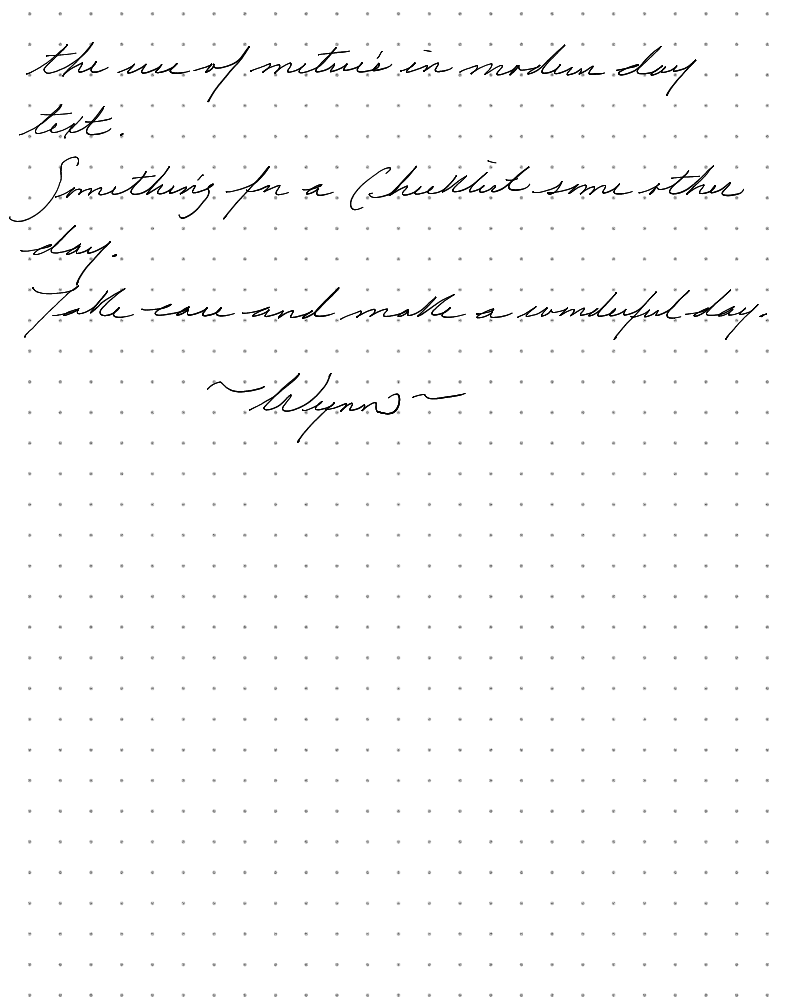 the use of metric in modern day
text.
Something for a Checklist some other
day.
Take care and make a wonderful day.
~Wynn~